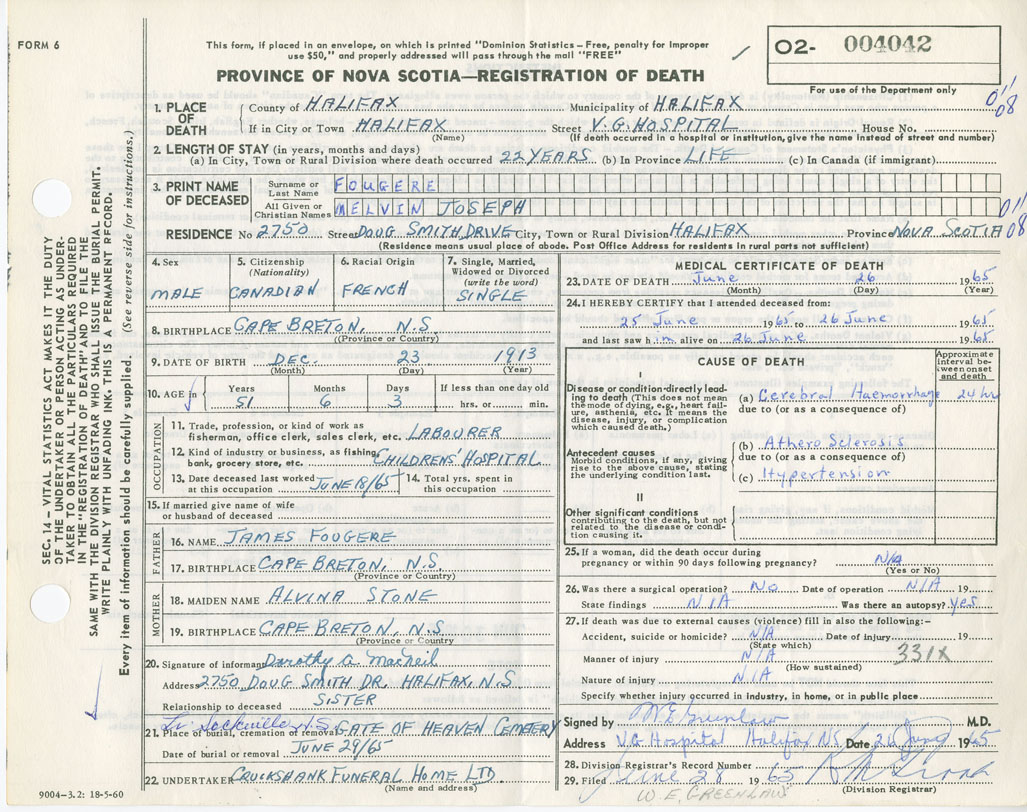 FORM 6
This form, if placed in an envelope, on which is printed "Dominion Statistics – Free, penalty for Improper
use $50," and properly addressed will pass through the mail "FREE"
O2- 004042
PROVINCE OF NOVA SCOTIA—REGISTRATION OF DEATH
For use of the Department only
1. PLACE OF DEATH
County of HALIFAX Municipality of HALIFAX
If in City or Town HALIFAX Street V.G. HOSPITAL House No.
(Name) (If death occurred in a hospital or institution, give the name instead of street and number)
01'
08
2. LENGTH OF STAY (in years, months and days)
(a) In City, Town or Rural Division where death occurred 22 YEARS (b) In Province LIFE (c) In Canada (if immigrant)
3. PRINT NAME OF DECEASED
Surname or Last Name FOUGERE
All Given or Christian Names MELVIN JOSEPH
01'
08
RESIDENCE No 2750 Street DOUG SMITH DRIVE City, Town or Rural Division HALIFAX Province NOVA SCOTIA
(Residence means usual place of abode. Post Office Address for residents in rural parts not sufficient)
4. Sex MALE
5. Citizenship (Nationality) CANADIAN
6. Racial Origin FRENCH
7. Single, Married, Widowed or Divorced (write the word) SINGLE
8. BIRTHPLACE CAPE BRETON, N.S.
(Province or Country)
9. DATE OF BIRTH DEC. 23 1913
(Month) (Day) (Year)
10. AGE in Years 51 Months 6 Days 3 If less than one day old hrs. or min.
OCCUPATION
11. Trade, profession, or kind of work as
fisherman, office clerk, sales clerk, etc. LABOURER
12. Kind of industry or business, as fishing,
bank, grocery store, etc. CHILDRENS' HOSPITAL
13. Date deceased last worked at this occupation JUNE 18/65
14. Total yrs. spent in this occupation
15. If married give name of wife
or husband of deceased
FATHER
16. NAME JAMES FOUGERE
17. BIRTHPLACE CAPE BRETON, N.S.
(Province or Country)
MOTHER
18. MAIDEN NAME ALVINA STONE
19. BIRTHPLACE CAPE BRETON, N.S.
(Province or Country)
20. Signature of informant Dorothy A. MacNeil
Address 2750 DOUG SMITH DR. HALIFAX, N.S
Relationship to deceased SISTER
Sackville N.S.
21. Place of burial, cremation or removal GATE OF HEAVEN CEMETERY
Date of burial or removal JUNE 29/65
22. UNDERTAKER CRUIKSHANK FUNERAL HOME LTD
(Name and address)
MEDICAL CERTIFICATE OF DEATH
23. DATE OF DEATH June 26 1965
(Month) (Day) (Year)
24. I HEREBY CERTIFY that I attended deceased from:
25 June 1965 to 26 June 1965
and last saw h im alive on 26 June 1965
CAUSE OF DEATH
Approximate interval between onset and death
I
Disease or condition directly leading to death (This does not mean the mode of dying, e.g., heart failure, asthenia, etc. It means the disease, injury, or complication which caused death.)
(a) Cerebral Haemorrhage 24 hrs
due to (or as a consequence of)
Antecedent causes
Morbid conditions, if any, giving rise to the above cause, stating the underlying condition last.
(b) Athero Sclerosis
due to (or as a consequence of)
(c) Hypertension
II
Other significant conditions
contributing to the death, but not related to the disease or condition causing it.
25. If a woman, did the death occur during
pregnancy or within 90 days following pregnancy? N/A
(Yes or No)
26. Was there a surgical operation? No Date of operation N/A 19
State findings N/A Was there an autopsy? yes
27. If death was due to external causes (violence) fill in also the following:-
Accident, suicide or homicide? N/A Date of injury 19
(State which)
Manner of injury N/A 331X
(How sustained)
Nature of injury N/A
Specify whether injury occurred in industry, in home, or in public place
Signed by W.E. Greenlaw M.D.
Address V.G. Hospital Halifax NS Date 26 June 1965
28. Division Registrar's Record Number
29. Filed June 28 1965
(Division Registrar)
W. E. GREENLAW
SEC. 14 – VITAL STATISTICS ACT MAKES IT THE DUTY
OF THE UNDERTAKER OR PERSON ACTING AS UNDER-
TAKER TO OBTAIN ALL THE PARTICULARS REQUIRED
IN THE "REGISTRATION OF DEATH" AND TO FILE THE
SAME WITH THE DIVISION REGISTRAR WHO SHALL ISSUE THE BURIAL PERMIT.
WRITE PLAINLY WITH UNFADING INK. THIS IS A PERMANENT RECORD.
Every item of information should be carefully supplied. (See reverse side for instructions.)
9004–3.2: 18-5-60